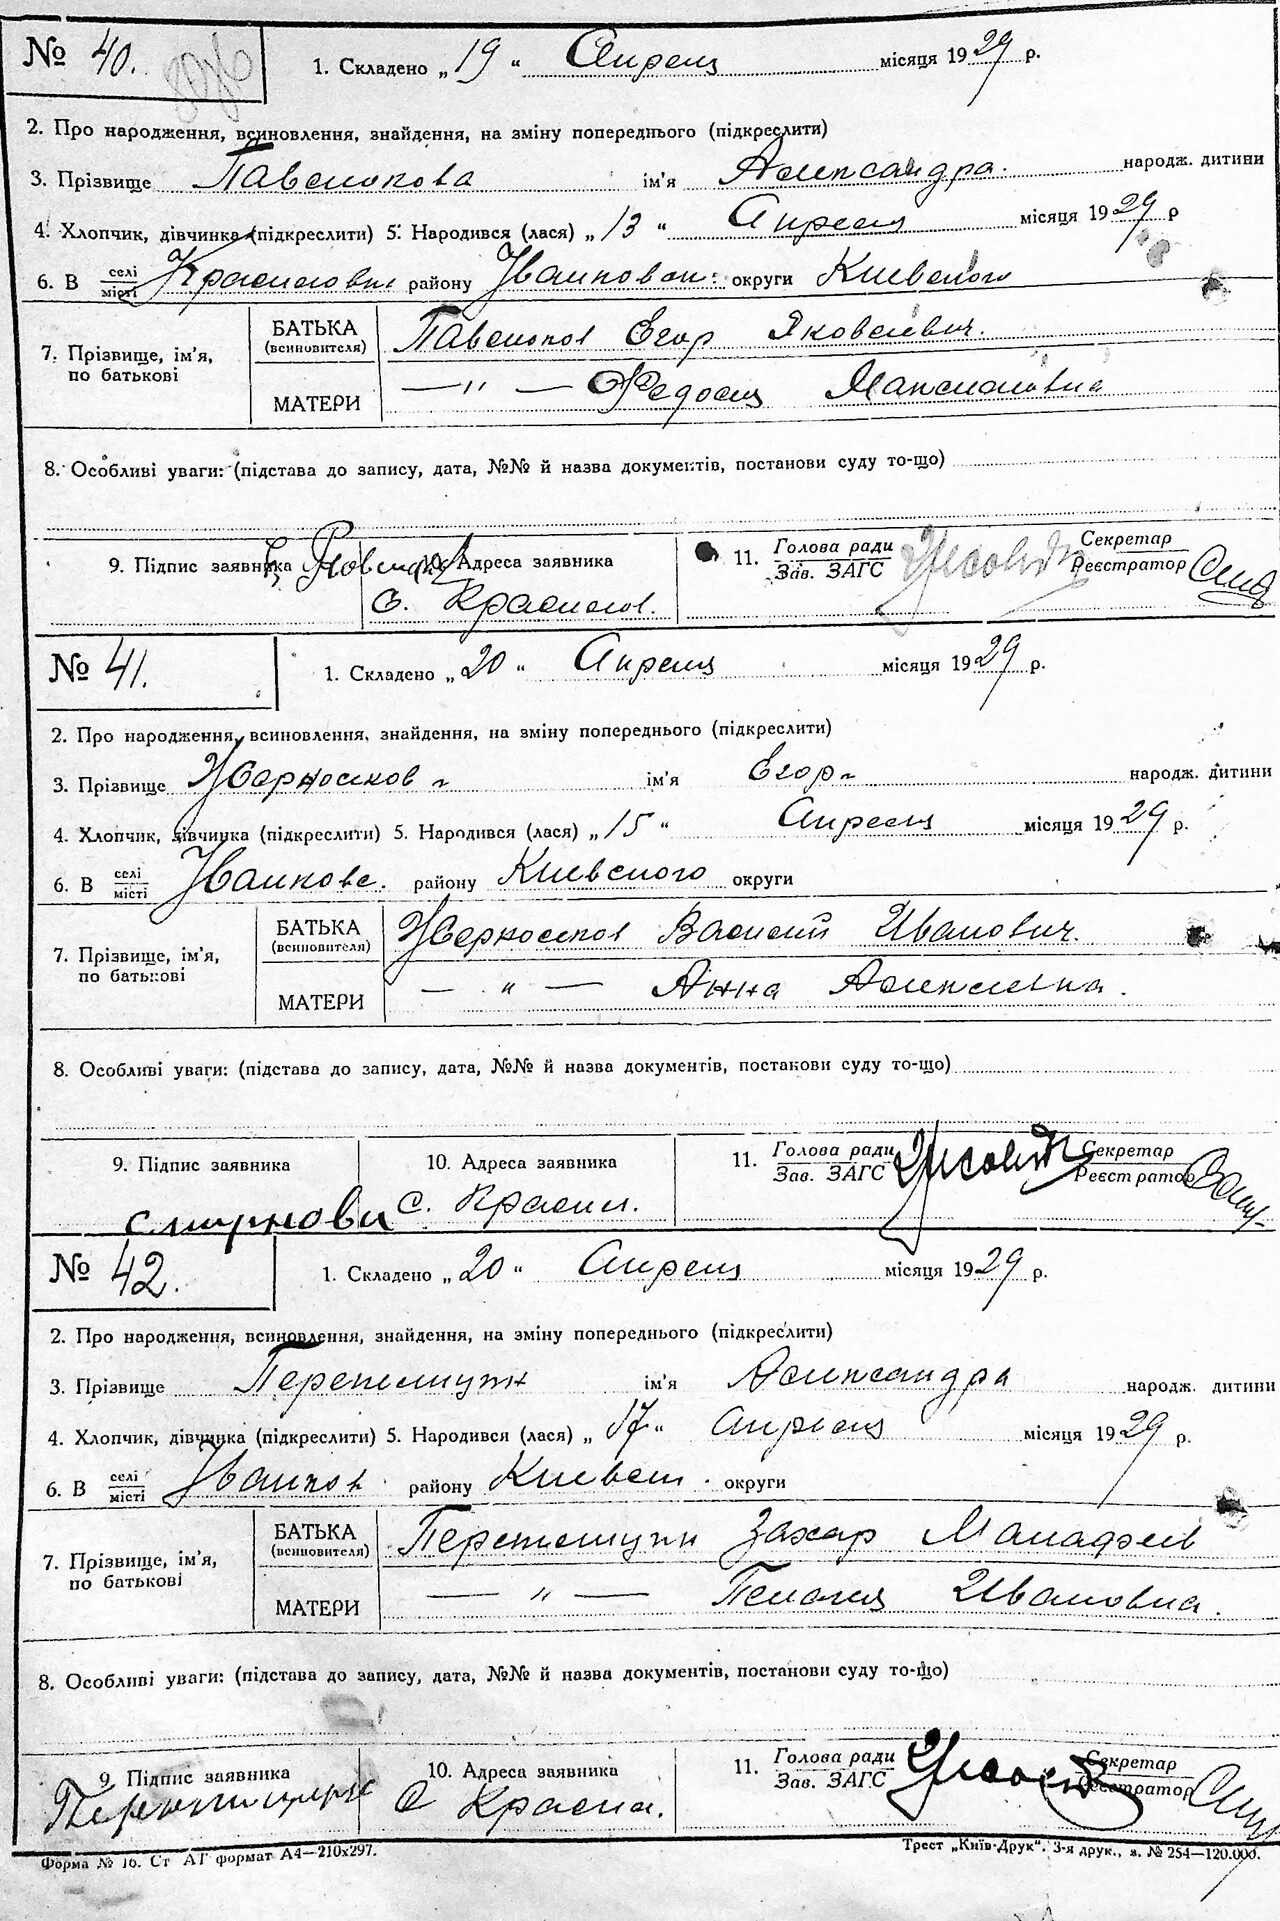 № 40. 1. Складено „19“ Апреля місяця 1929 р.
2. Про народження, всиновлення, знайдення, на зміну попереднього (підкреслити)
3. Прізвище Павлюкова ім'я Александра. народж. дитини
4. Хлопчик, дівчинка (підкреслити) 5. Народився (лася) „13“ Апреля місяця 1929 р
6. В селі місті район у Иванков. округи Киевского
7. Прізвище, ім'я, по батькові
БАТЬКА (всиновителя) Павлюков Егор Яковлевич.
МАТЕРИ — " — Федосия Максимовна
8. Особливі уваги: (підстава до запису, дата, №№ й назва документів, постанови суду то-що)
9. Підпис заявника 10. Адреса заявника 11. Голова ради Зав. ЗАГС Секретар Реєстратор
с. Красил.
№ 41. 1. Складено „20“ Апреля місяця 1929 р.
2. Про народження, всиновлення, знайдення, на зміну попереднього (підкреслити)
3. Прізвище ім'я Егор народж. дитини
4. Хлопчик, дівчинка (підкреслити) 5. Народився (лася) „15“ Апреля місяця 1929 р.
6. В селі місті Иванков. району Киевского округи
7. Прізвище, ім'я, по батькові
БАТЬКА (всиновителя) Василий Иванович.
МАТЕРИ — " — Анна Алексеевна.
8. Особливі уваги: (підстава до запису, дата, №№ й назва документів, постанови суду то-що)
9. Підпис заявника 10. Адреса заявника 11. Голова ради Зав. ЗАГС Секретар Реєстратор
с. Красил.
№ 42. 1. Складено „20“ Апреля місяця 1929 р.
2. Про народження, всиновлення, знайдення, на зміну попереднього (підкреслити)
3. Прізвище ім'я Александра народж. дитини
4. Хлопчик, дівчинка (підкреслити) 5. Народився (лася) „17“ Апреля місяця 1929 р.
6. В селі місті Иванков району Киевск. округи
7. Прізвище, ім'я, по батькові
БАТЬКА (всиновителя) Захар
МАТЕРИ — " — Пелагия Ивановна.
8. Особливі уваги: (підстава до запису, дата, №№ й назва документів, постанови суду то-що)
9. Підпис заявника 10. Адреса заявника 11. Голова ради Зав. ЗАГС Секретар Реєстратор
с Красил.
Форма № 16. Ст АГ формат А4—210x297. Трест „Київ-Друк“. 3-я друк., з. № 254—120.000.